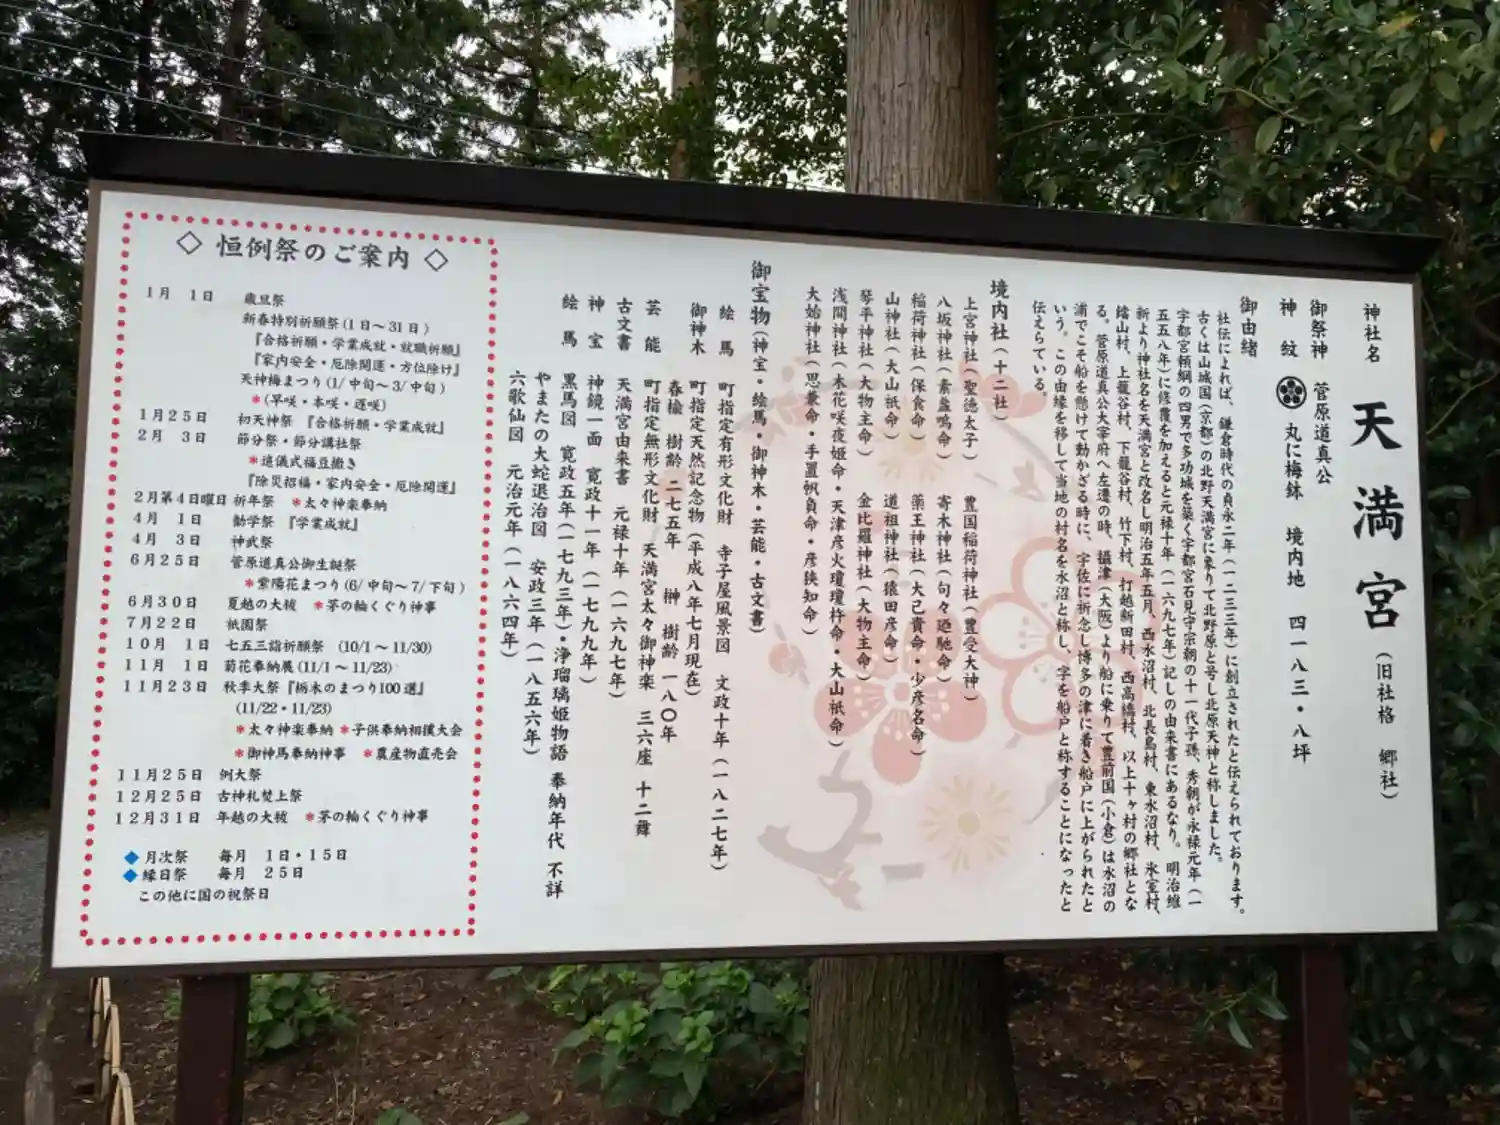 神社名　天満宮（旧社格　郷社）
御祭神　菅原道真公
神　紋　丸に梅鉢　境内地　四一八三・八坪
御由緒
社伝によれば、鎌倉時代の貞永二年（一二三三年）に創立されたと伝えられております。
古くは山城国（京都）の北野天満宮に象りて北野原と号し北原天神と称しました。
宇都宮頼綱の四男で多功城を築く宇都宮石見守宗朝の十一代子孫、秀朝が永禄元年（一
五五八年）に修覆を加えると元禄十年（一六九七年）記しの由来書にあるなり。明治維
新より神社名を天満宮と改名し明治五年五月、西水沼村、北長島村、東水沼村、氷室村、
鐺山村、上籠谷村、下籠谷村、竹下村、打越新田村、西高橋村、以上十ヶ村の郷社とな
る。菅原道真公大宰府へ左遷の時、摂津（大阪）より船に乗りて豊前国（小倉）は水沼の
浦でこそ船を懸けて動かざる時に、宇佐に祈念し博多の津に着き船戸に上がられたと
いう。この由縁を移して当地の村名を水沼と称し、字を船戸と称することになったと
伝えらている。
境内社（十二社）
上宮神社（聖徳太子）　豊国稲荷神社（豊受大神）
八坂神社（素盞嗚命）　寄木神社（句々廼馳命）
稲荷神社（保食命）　薬王神社（大己貴命・少彦名命）
山神社（大山祇命）　道祖神社（猿田彦命）
琴平神社（大物主命）　金比羅神社（大物主命）
浅間神社（木花咲夜姫命・天津彦火瓊瓊杵命・大山祇命）
大始神社（思兼命・手置帆負命・彦狭知命）
御宝物（神宝・絵馬・御神木・芸能・古文書）
絵　馬　町指定有形文化財　寺子屋風景図　文政十年（一八二七年）
御神木　町指定天然記念物（平成八年七月現在）
春楡　樹齢　二七五年　榊　樹齢　一八〇年
芸　能　町指定無形文化財　天満宮太々御神楽　三六座　十二舞
古文書　天満宮由来書　元禄十年（一六九七年）
神　宝　神鏡一面　寛政十一年（一七九九年）
絵　馬　黒馬図　寛政五年（一七九三年）・浄瑠璃姫物語　奉納年代　不詳
やまたの大蛇退治図　安政三年（一八五六年）
六歌仙図　元治元年（一八六四年）
◇ 恒例祭のご案内 ◇
1月　1日　歳旦祭
新春特別祈願祭（1日～31日）
『合格祈願・学業成就・就職祈願』
『家内安全・厄除開運・方位除け』
天神梅まつり（1/中旬～3/中旬）
*（早咲・本咲・遅咲）
1月25日　初天神祭　『合格祈願・学業成就』
2月　3日　節分祭・節分講社祭
*追儺式福豆撒き
『除災招福・家内安全・厄除開運』
2月第4日曜日　祈年祭　*太々神楽奉納
4月　1日　勧学祭　『学業成就』
4月　3日　神武祭
6月25日　菅原道真公御生誕祭
*紫陽花まつり（6/中旬～7/下旬）
6月30日　夏越の大祓　*茅の輪くぐり神事
7月22日　祇園祭
10月　1日　七五三詣祈願祭　（10/1～11/30）
11月　1日　菊花奉納農（11/1～11/23）
11月23日　秋季大祭『栃木のまつり100選』
（11/22・11/23）
*太々神楽奉納 *子供奉納相撲大会
*御神馬奉納神事　*農産物直売会
11月25日　例大祭
12月25日　古神札焚上祭
12月31日　年越の大祓　*茅の輪くぐり神事
◆月次祭　毎月　1日・15日
◆縁日祭　毎月　25日
この他に国の祝祭日